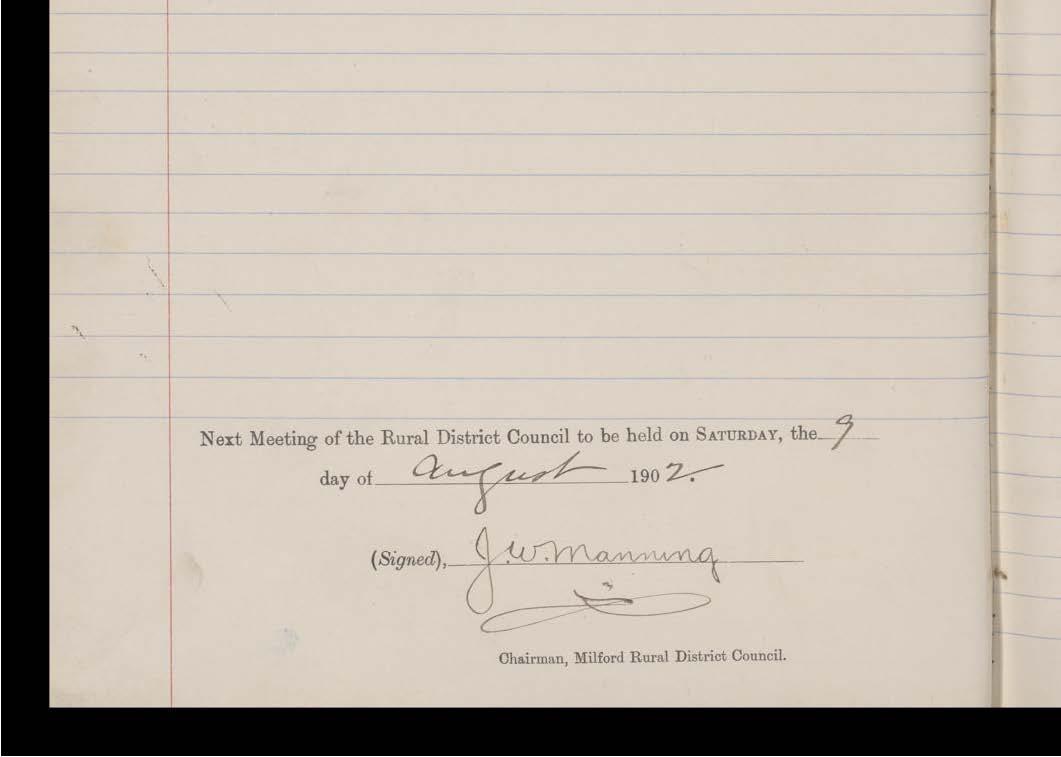 Next Meeting of the Rural District Council to be held on SATURDAY, the 9
day of August 1902.
(Signed), J. W. Manning
Chairman, Milford Rural District Council.